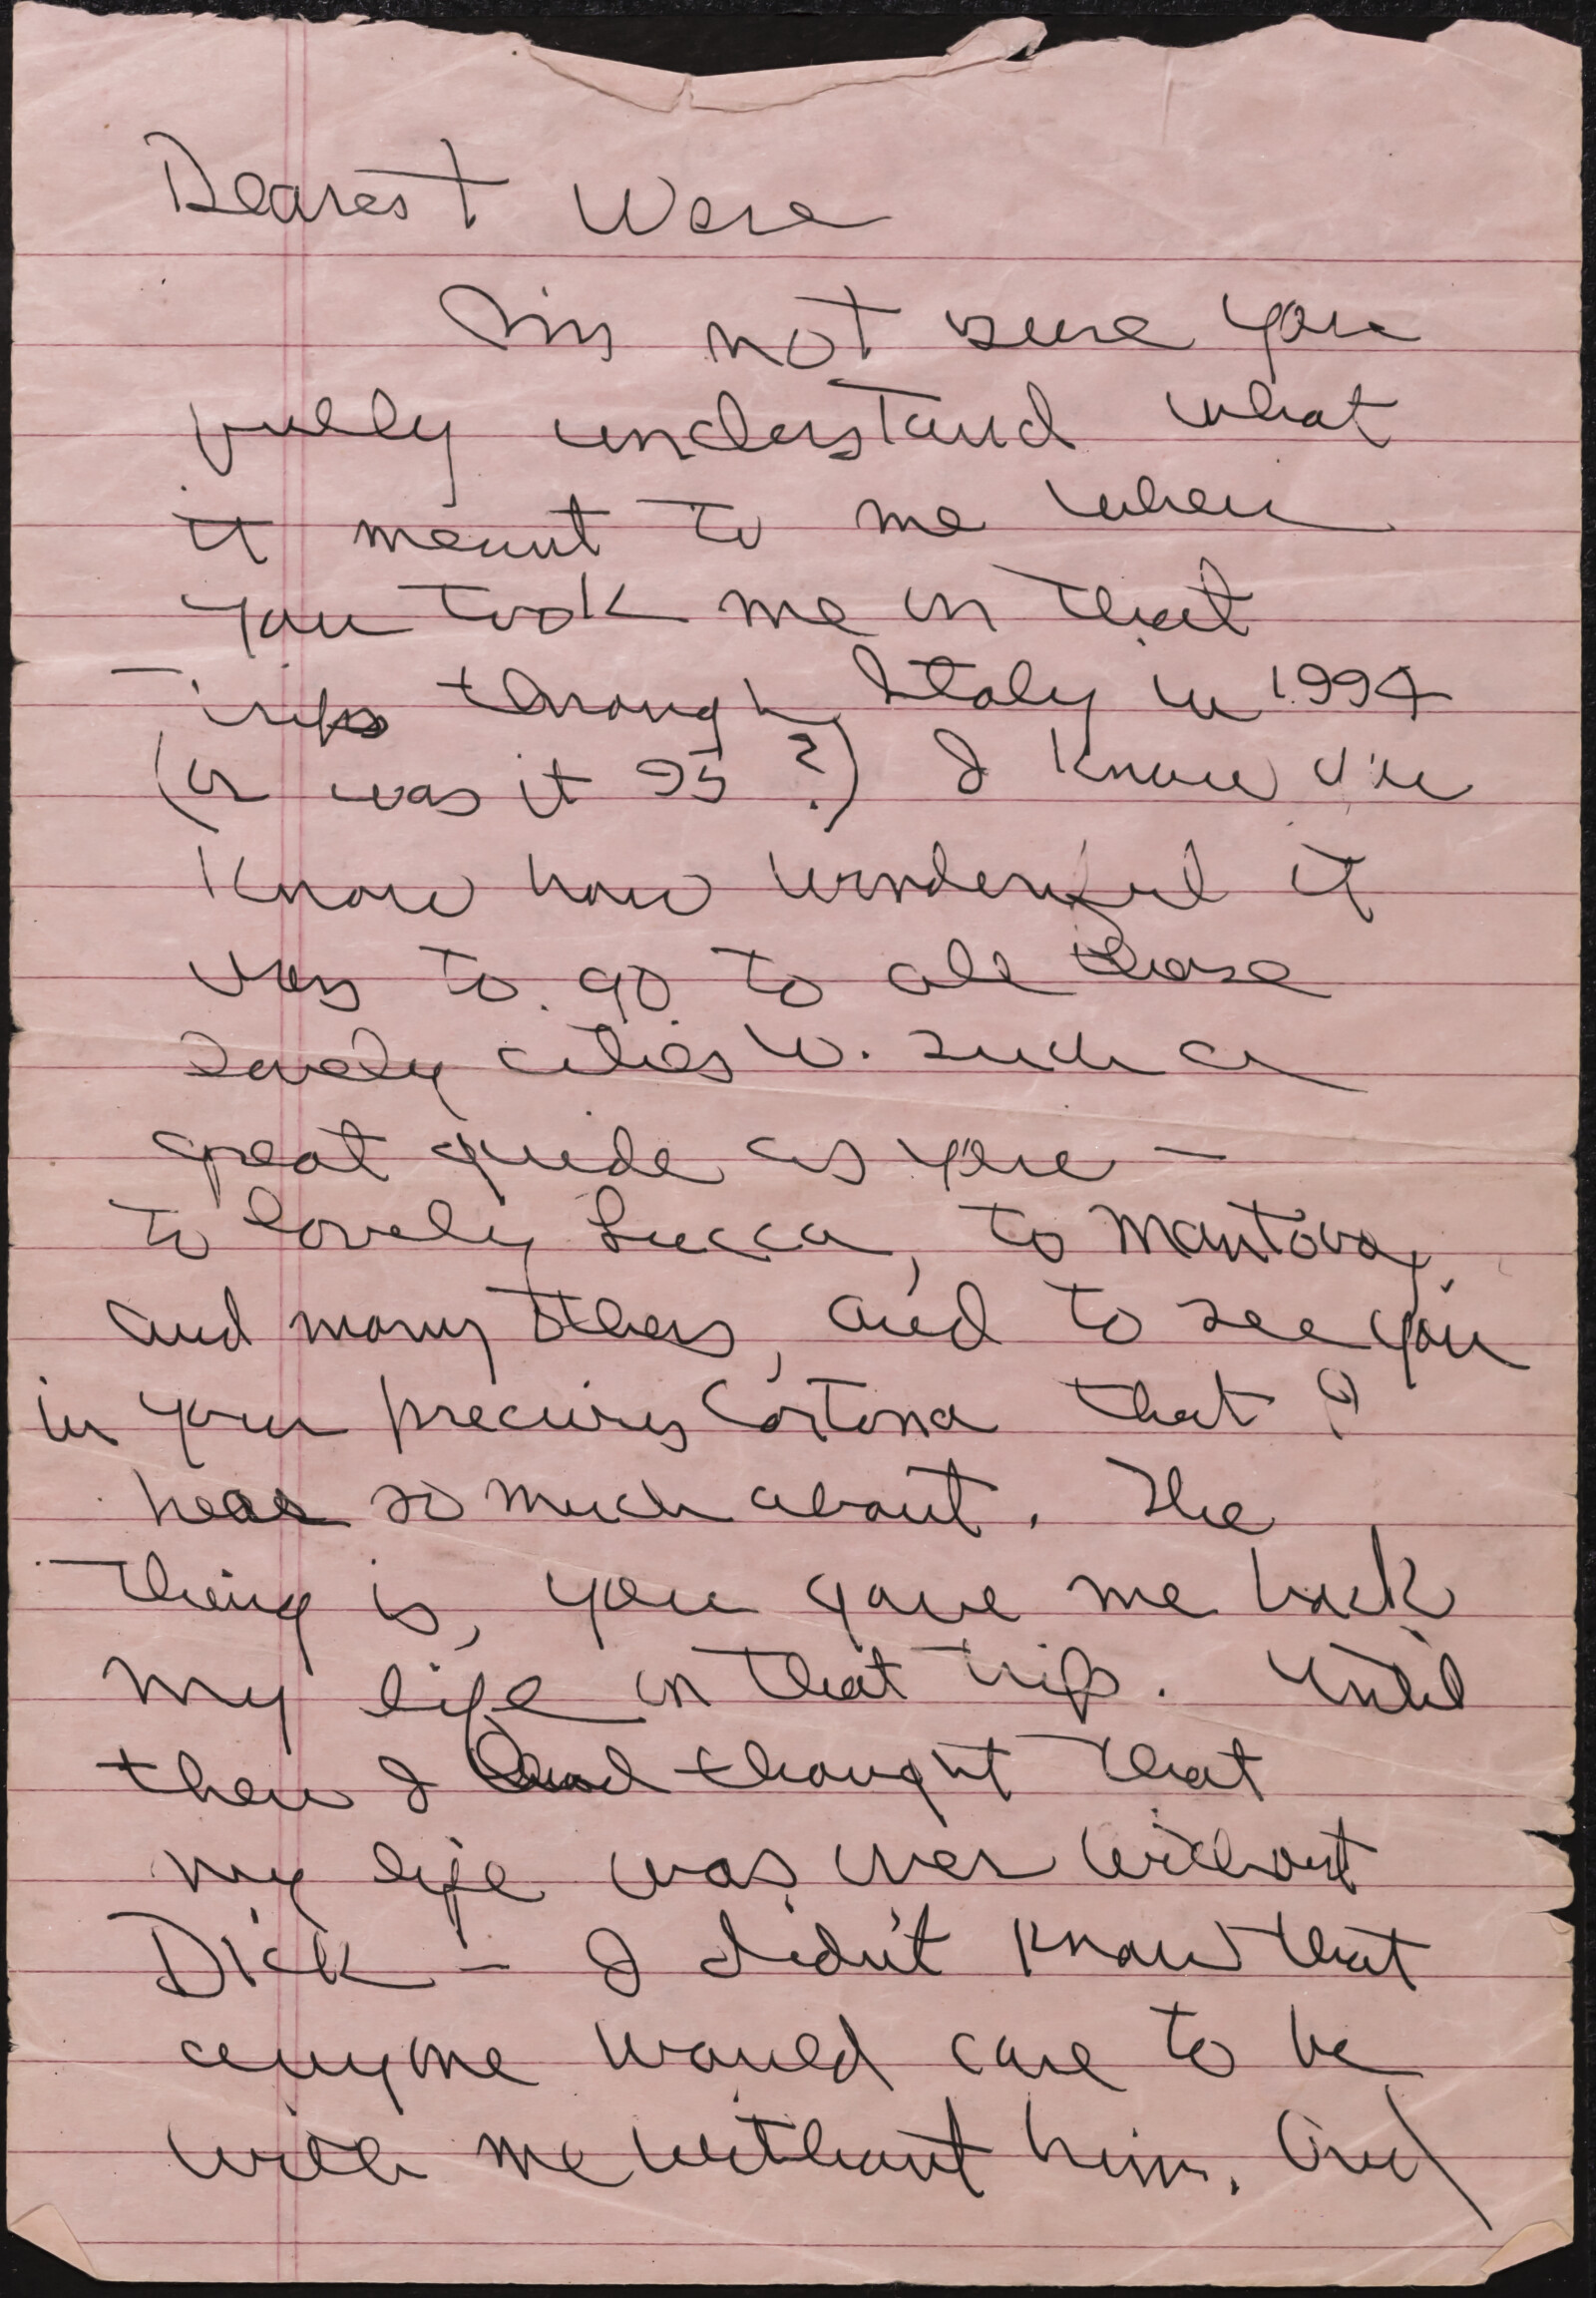 Dearest Were
I'm not sure you
fully understand what
it meant to me when
you took me on that
trip through Italy in 1994
(or was it 95?) I know
know how wonderful it
was to go to all those
lovely cities w. such a
great guide as you –
to lovely Lucca, to Mantova,
and many others, and to see you
in your precious Cortona that I
hear so much about. The
thing is, you gave me back
my life on that trip. Until
then I had thought that
my life was over without
Dick – I didn't know that
anyone would care to be
with me without him. And